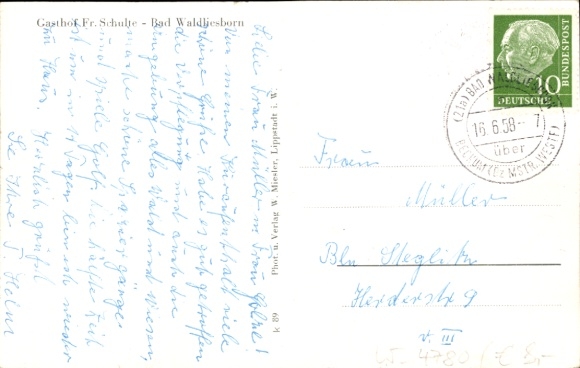 Gasthof Fr. Schulte - Bad Waldliesborn
Liebe Frau Müller u. Frau
Von meinem Kuraufenthalt viele
schöne Grüße. Habe es gut getroffen
die Verpflegung und auch die
Umgebung, alles Wald und Wiesen,
mache schöne Spaziergänge
und spiele Golf. Die Hälfte Zeit
ist um in 11 Tagen bin ich wieder
zu Haus. Herzlich grüßt
Sie Ihre
Phot. u. Verlag W. Miesler, Lippstadt i. W.
k 89
DEUTSCHE
BUNDESPOST
10
(21a) BAD WALDLIESBORN
16.6.58 - 7
über
BECKUM (Bz MSTR, WESTF)
Frau
Müller
Bln Steglitz
Herderstr 9
v. III
4780